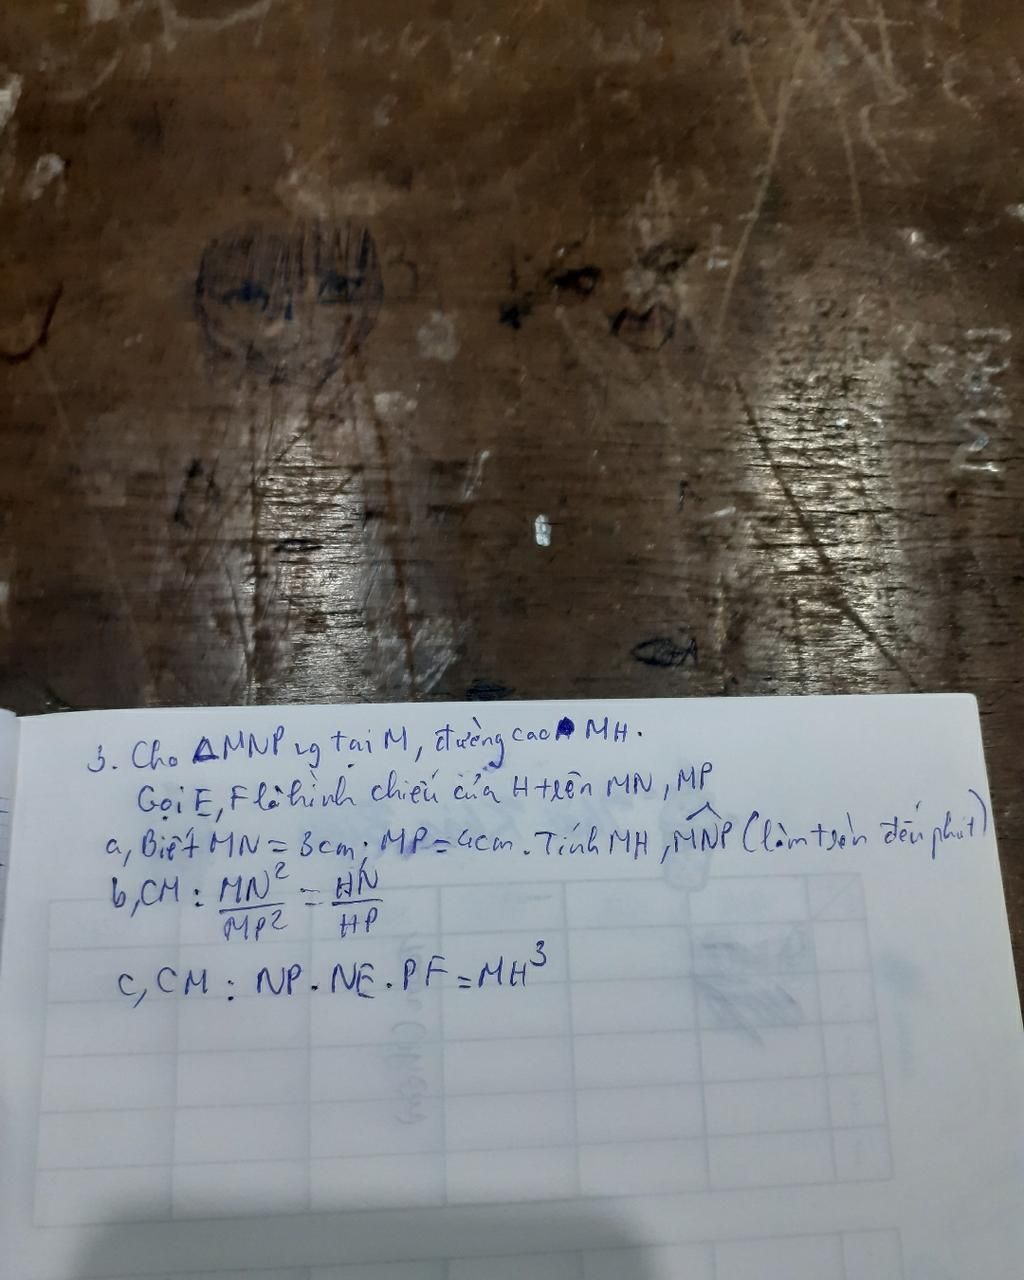 3. Cho ΔMNP vg tại M, đường cao MH.
Gọi E, F là hình chiếu của H trên MN, MP
a, Biết MN = 3cm; MP = 4cm. Tính MH, \widehat{MNP} (làm tròn đến phút)
b, CM: \frac{MN^2}{MP^2} = \frac{HN}{HP}
c, CM: NP . NE . PF = MH^3